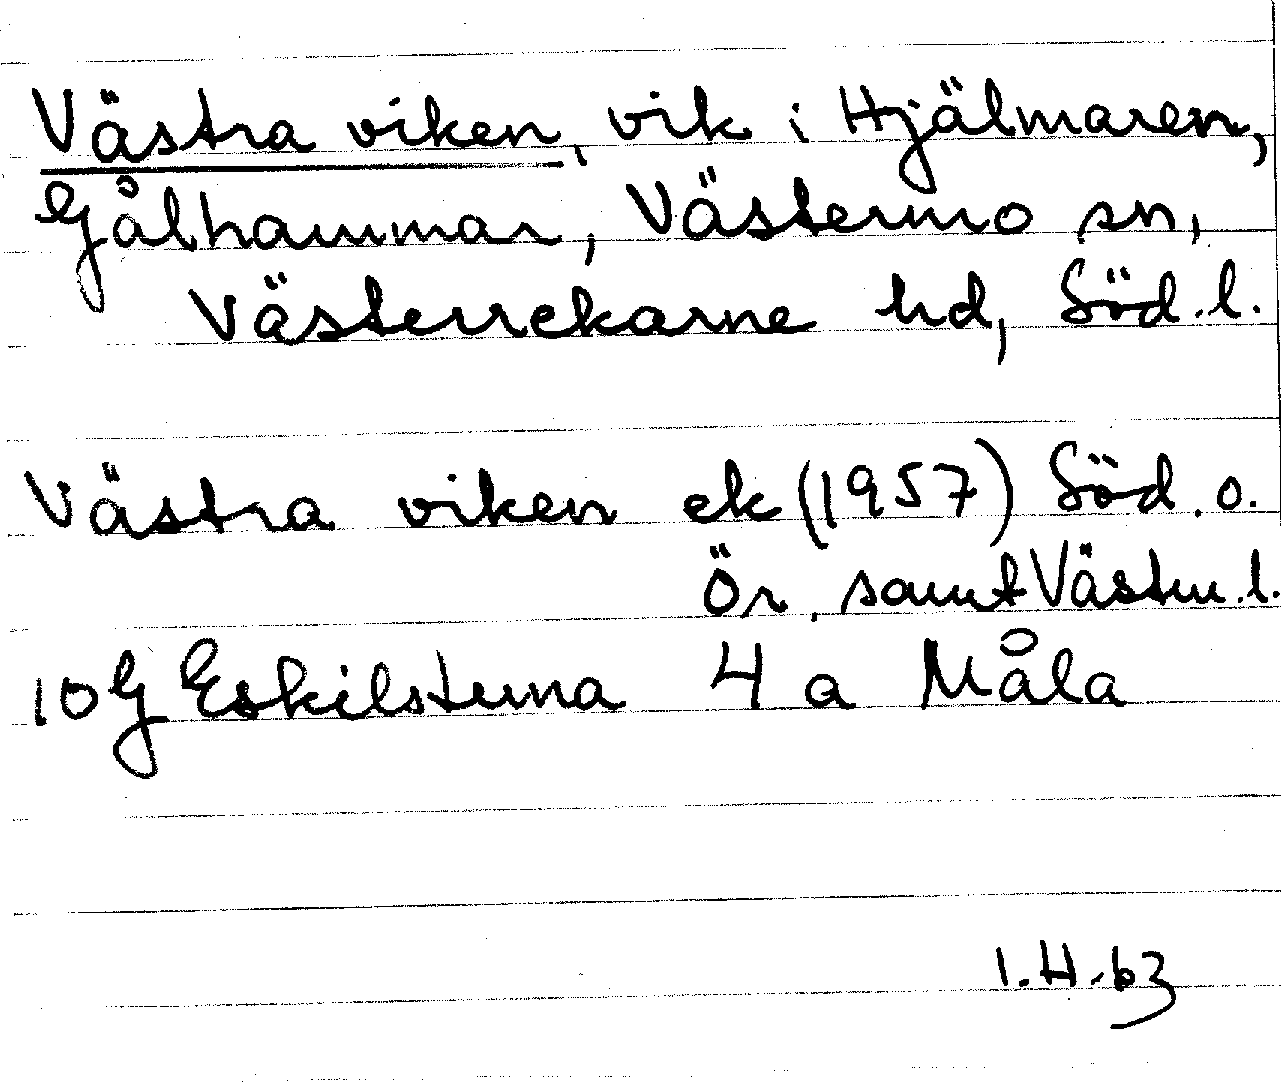 Västra viken, vik i Hjälmaren,
Gålhammar, Västermo sn,
Västerrekarne hd, Söd. l.
Västra viken ek (1957) Söd. o.
Ör. samt Västm. l.
10G Eskilstuna 4 a Måla
1.H.63